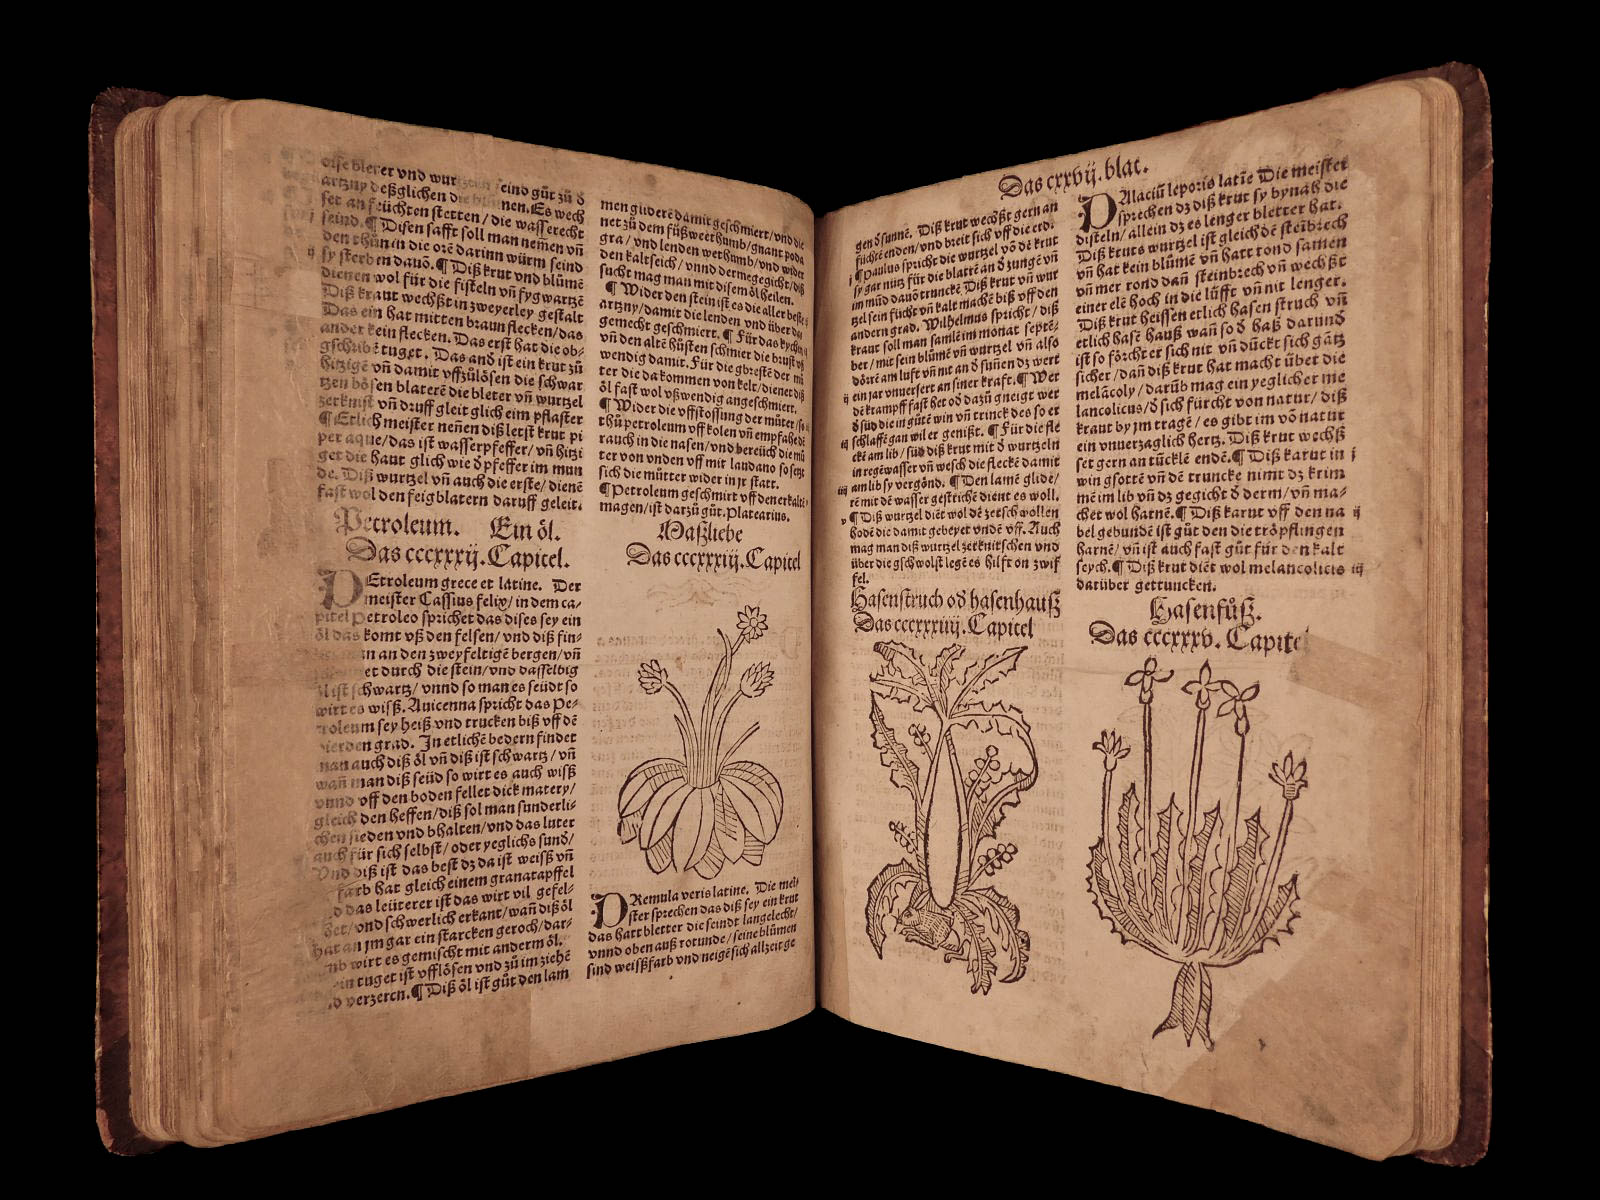 oise bleter vnd wur seind gůt zů ð
artzny deßglichen die blůmen. Es wech
set an früchten stetten / die wasserecht
seind. ¶ Disen safft soll man nemen vñ
den thůn in die orē darinn würm seind
sy sterben dauō. ¶ Diß krut vnd blůmē
dienen wol für die fisteln vñ fygwartzē
Diß kraut wechßt in zweyerley gestalt
Das ein hat mitten braun flecken / das
ander kein flecken. Das erst hat die ob-
gschribē tuget. Das and ist ein krut zů
hitzigē vñ damit vffzůlösen die schwar
tzen bösen blaterē die bleter vñ wurtzel
zerknist vñ druff gleit glich eim pflaster
¶ Etlich meister neñen diß letst krut pi
per aque / das ist wasserpfeffer / vñ hitzi
get die haut glich wie ð pfeffer im mun
de. Diß wurtzel vñ auch die erste / dienē
fast wol den feigblatern daruff geleit.
Petroleum. Ein öl.
Das cccxxxij. Capitel.
PEtroleum grece et latine. Der
meister Cassius felix / in dem ca-
pitel Petroleo sprichet das dises sey ein
öl das komt vß den felsen / vnd diß fin-
an den zweyfeltigē bergen / vñ
et durch die stein / vnd dasselbig
öl ist schwartz / vnnd so man es seüdt so
wirt es wiß. Auicenna spricht das Pe-
troleum sey heiß vnd trucken biß vff dē
vierden grad. In etlichē bedern findet
man auch diß öl vñ diß ist schwartz / vñ
wañ man diß seüd so wirt es auch wiß
vnnd vff den boden fellet dick matery /
gleich den heffen / diß sol man sunderli-
chen sieden vnd bhalten / vnd das luter
auch für sich selbst / oder yeglichs sunð /
Vnd diß ist das best dz da ist weiß vñ
farb hat gleich einem granatapffel
das leüterer ist das wirt vil gefel-
/ vnd schwerlich erkant / wañ diß öl
hat an jm gar ein starcken geroch / dar-
wirt es gemischt mit anderm öl.
tuget ist vfflösen vnd zů im ziehē
verzeren. ¶ Diß öl ist gůt den lam
men gliderē damit geschmiert / vnd die
net zů dem füßweethumb / gnant poda
gra / vnd lenden wethumb / vnd wider
den kaltseich / vnnd dermegegicht / diß
sucht mag man mit disem öl heilen.
¶ Wider den stein ist es die aller beste
artzny / damit die lenden vnd über da
gemecht geschmiert. ¶ Für das kychē
vñ den alte hůsten schmier die brust vß
wendig damit. Für die gbreste der mů
ter die da kommen von kelt / dienet diß
öl fast wol vßwendig angeschmiert.
¶ Wider die vffstossung der můter / so
thů petroleum vff kolen vñ empfahe dē
rauch in die nasen / vnd bereüch die mů
ter von vnden vff mit laudano so setzt
sich die můtter wider in jr statt.
¶ Petroleum geschmirt vff den erkaltē
magen / ist darzů gůt. Platearius.
Maßliebe
Das cccxxxiij. Capitel
PRemula veris latine. Die mei
ster sprechen das diß sey ein krut
das hatt bletter die seindt langelecht /
vnnd oben auß rotunde / seine blůmen
sind weißfarb vnd neigē sich allzeit ge
Das cxxvij. blat.
gen ð sunnē. Diß krut wechßt gern an
füchtē enden / vnd breit sich vff die erd.
j ¶ Paulus spricht die wurtzel vō dē krut
sy gar nütz für die blatrē an ð zungē vñ
im mūd dauō trunckē. Diß krut vñ wur
tzel sein fücht vñ kalt machē biß vff den
andern grad. Wilhelmus spricht / diß
kraut soll man samlē im monat septē-
ber / mit sein blůmē vñ wurtzel vñ also
dörrē am lufft vñ nit an ð suñen dz wert
ein jar vnuersert an siner kraft. ¶ Wer
ij dē krampff fast het oð dazů gneigt wer
ð süd die in gůtē win vñ trinck des so er
iij schlaffē gan wil er genißt. ¶ Für die fle
ckē am lib / süd diß krut mit ð wurtzeln
in regēwasser vñ wesch die fleckē damit
iiij am lib sy vergōnd. ¶ Den lamē glidē /
rē mit dē wasser gestrichē dient es woll.
v ¶ Diß wurtzel diēt wol dē zerschwollen
hodē die damit gebeyet vndē vff. Auch
mag man diß wurtzel zerknitschen vnd
über die gschwolst legē es hilft on zwif
fel.
Hasenstruch oð hasenhauß
Das cccxxxiiij. Capitel
PAlaciū leporis latīe Die meister
sprechen dz diß krut sy bynah die
disteln / allein dz es lenger bletter hat.
Diß kruts wurtzel ist gleich dē steībrech
vñ hat kein blůmē vñ hatt rond samen
vñ mer rond dañ steinbrech vñ wechßt
einer elē hoch in die lüfft vñ nit lenger.
Diß krut heissen etlich hasen struch vñ
etlich hasē hauß wañ so ð haß darund
ist so förcht er sich nit vñ dückt sich gātz
sicher / dañ diß krut hat macht über die
melācoly / darūb mag ein yeglicher me
lancolicus / ð sich fürcht von natur / diß
kraut by jm tragē / es gibt im vō natur
ein vnuerzaglich hertz. Diß krut wechß
set gern an tücklē endē. ¶ Diß karut in j
win gsottē vñ dē truncke nimt dz krim
mē im lib vñ dz gegicht ð derm / vñ ma-
chet wol harnē. ¶ Diß karut vff den na ij
bel gebundē ist gůt den die tröpflingen
harnē / vñ ist auch fast gůt für den kalt
seych. ¶ Diß krut diēt wol melancolicis iij
darüber gettuncken.
Hasenfůß.
Das cccxxxv. Capitel